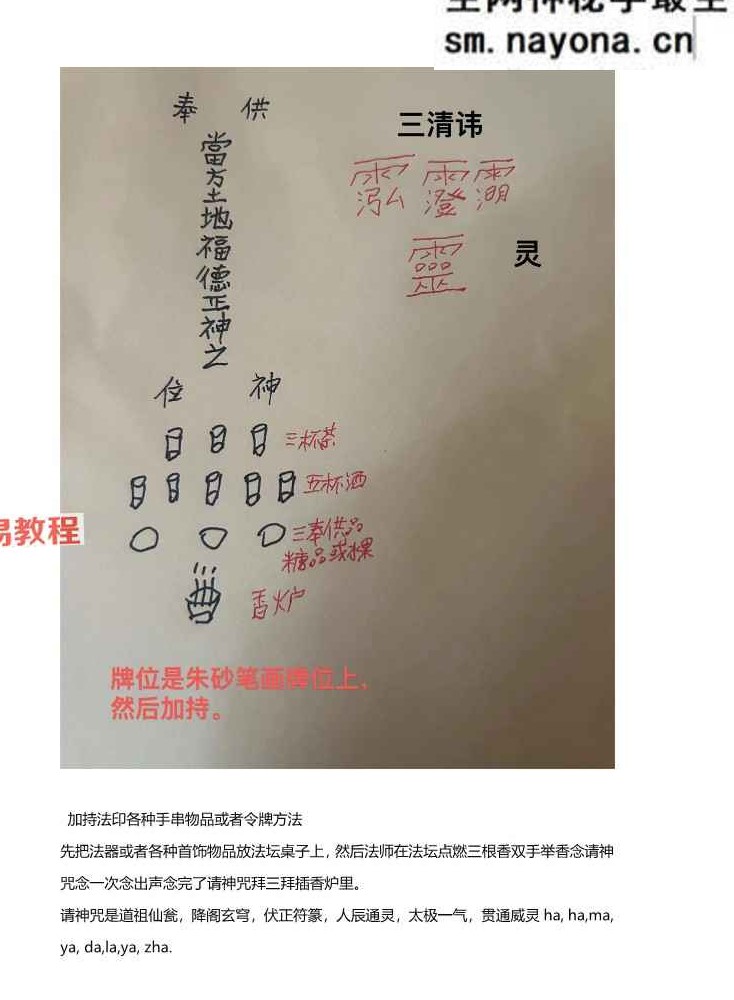 sm.nayona.cn
奉 供
當方土地福德正神之
位 神
三清讳
灵
三杯茶
五杯酒
三奉供品
糖品或水果
香炉
易教程
牌位是朱砂笔画牌位上，
然后加持。
加持法印各种手串物品或者令牌方法
先把法器或者各种首饰物品放法坛桌子上，然后法师在法坛点燃三根香双手举香念请神
咒念一次念出声念完了请神咒拜三拜插香炉里。
请神咒是道祖仙瓮，降阁玄穹，伏正符篆，人辰通灵，太极一气，贯通威灵 ha, ha,ma,
ya, da,la,ya, zha.